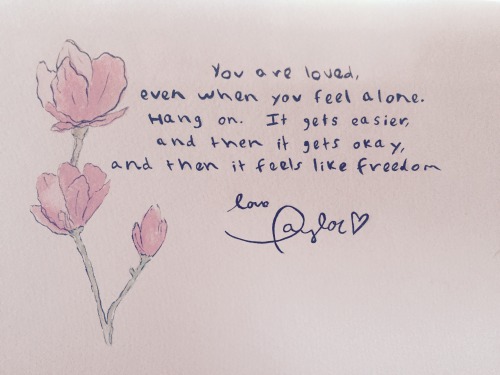 You are loved,
even when you feel alone.
Hang on. It gets easier,
and then it gets okay,
and then it feels like freedom
love
Taylor